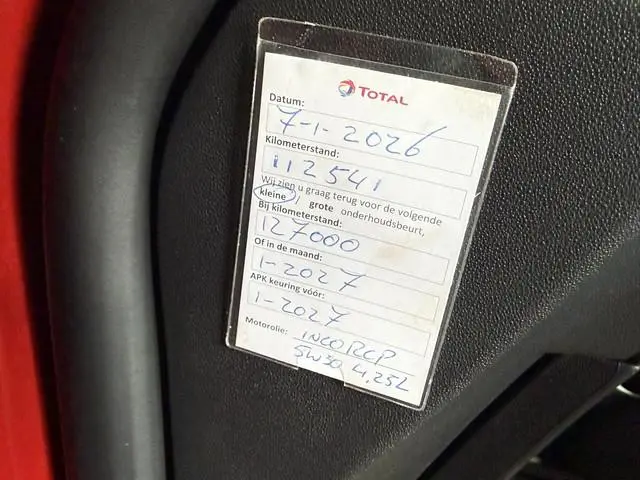 TOTAL
Datum:
7-1-2026
Kilometerstand:
112541
Wij zien u graag terug voor de volgende
kleine / grote onderhoudsbeurt,
Bij kilometerstand:
127000
Of in de maand:
1-2027
APK keuring vóór:
1-2027
Motorolie:
5W30 4,25L